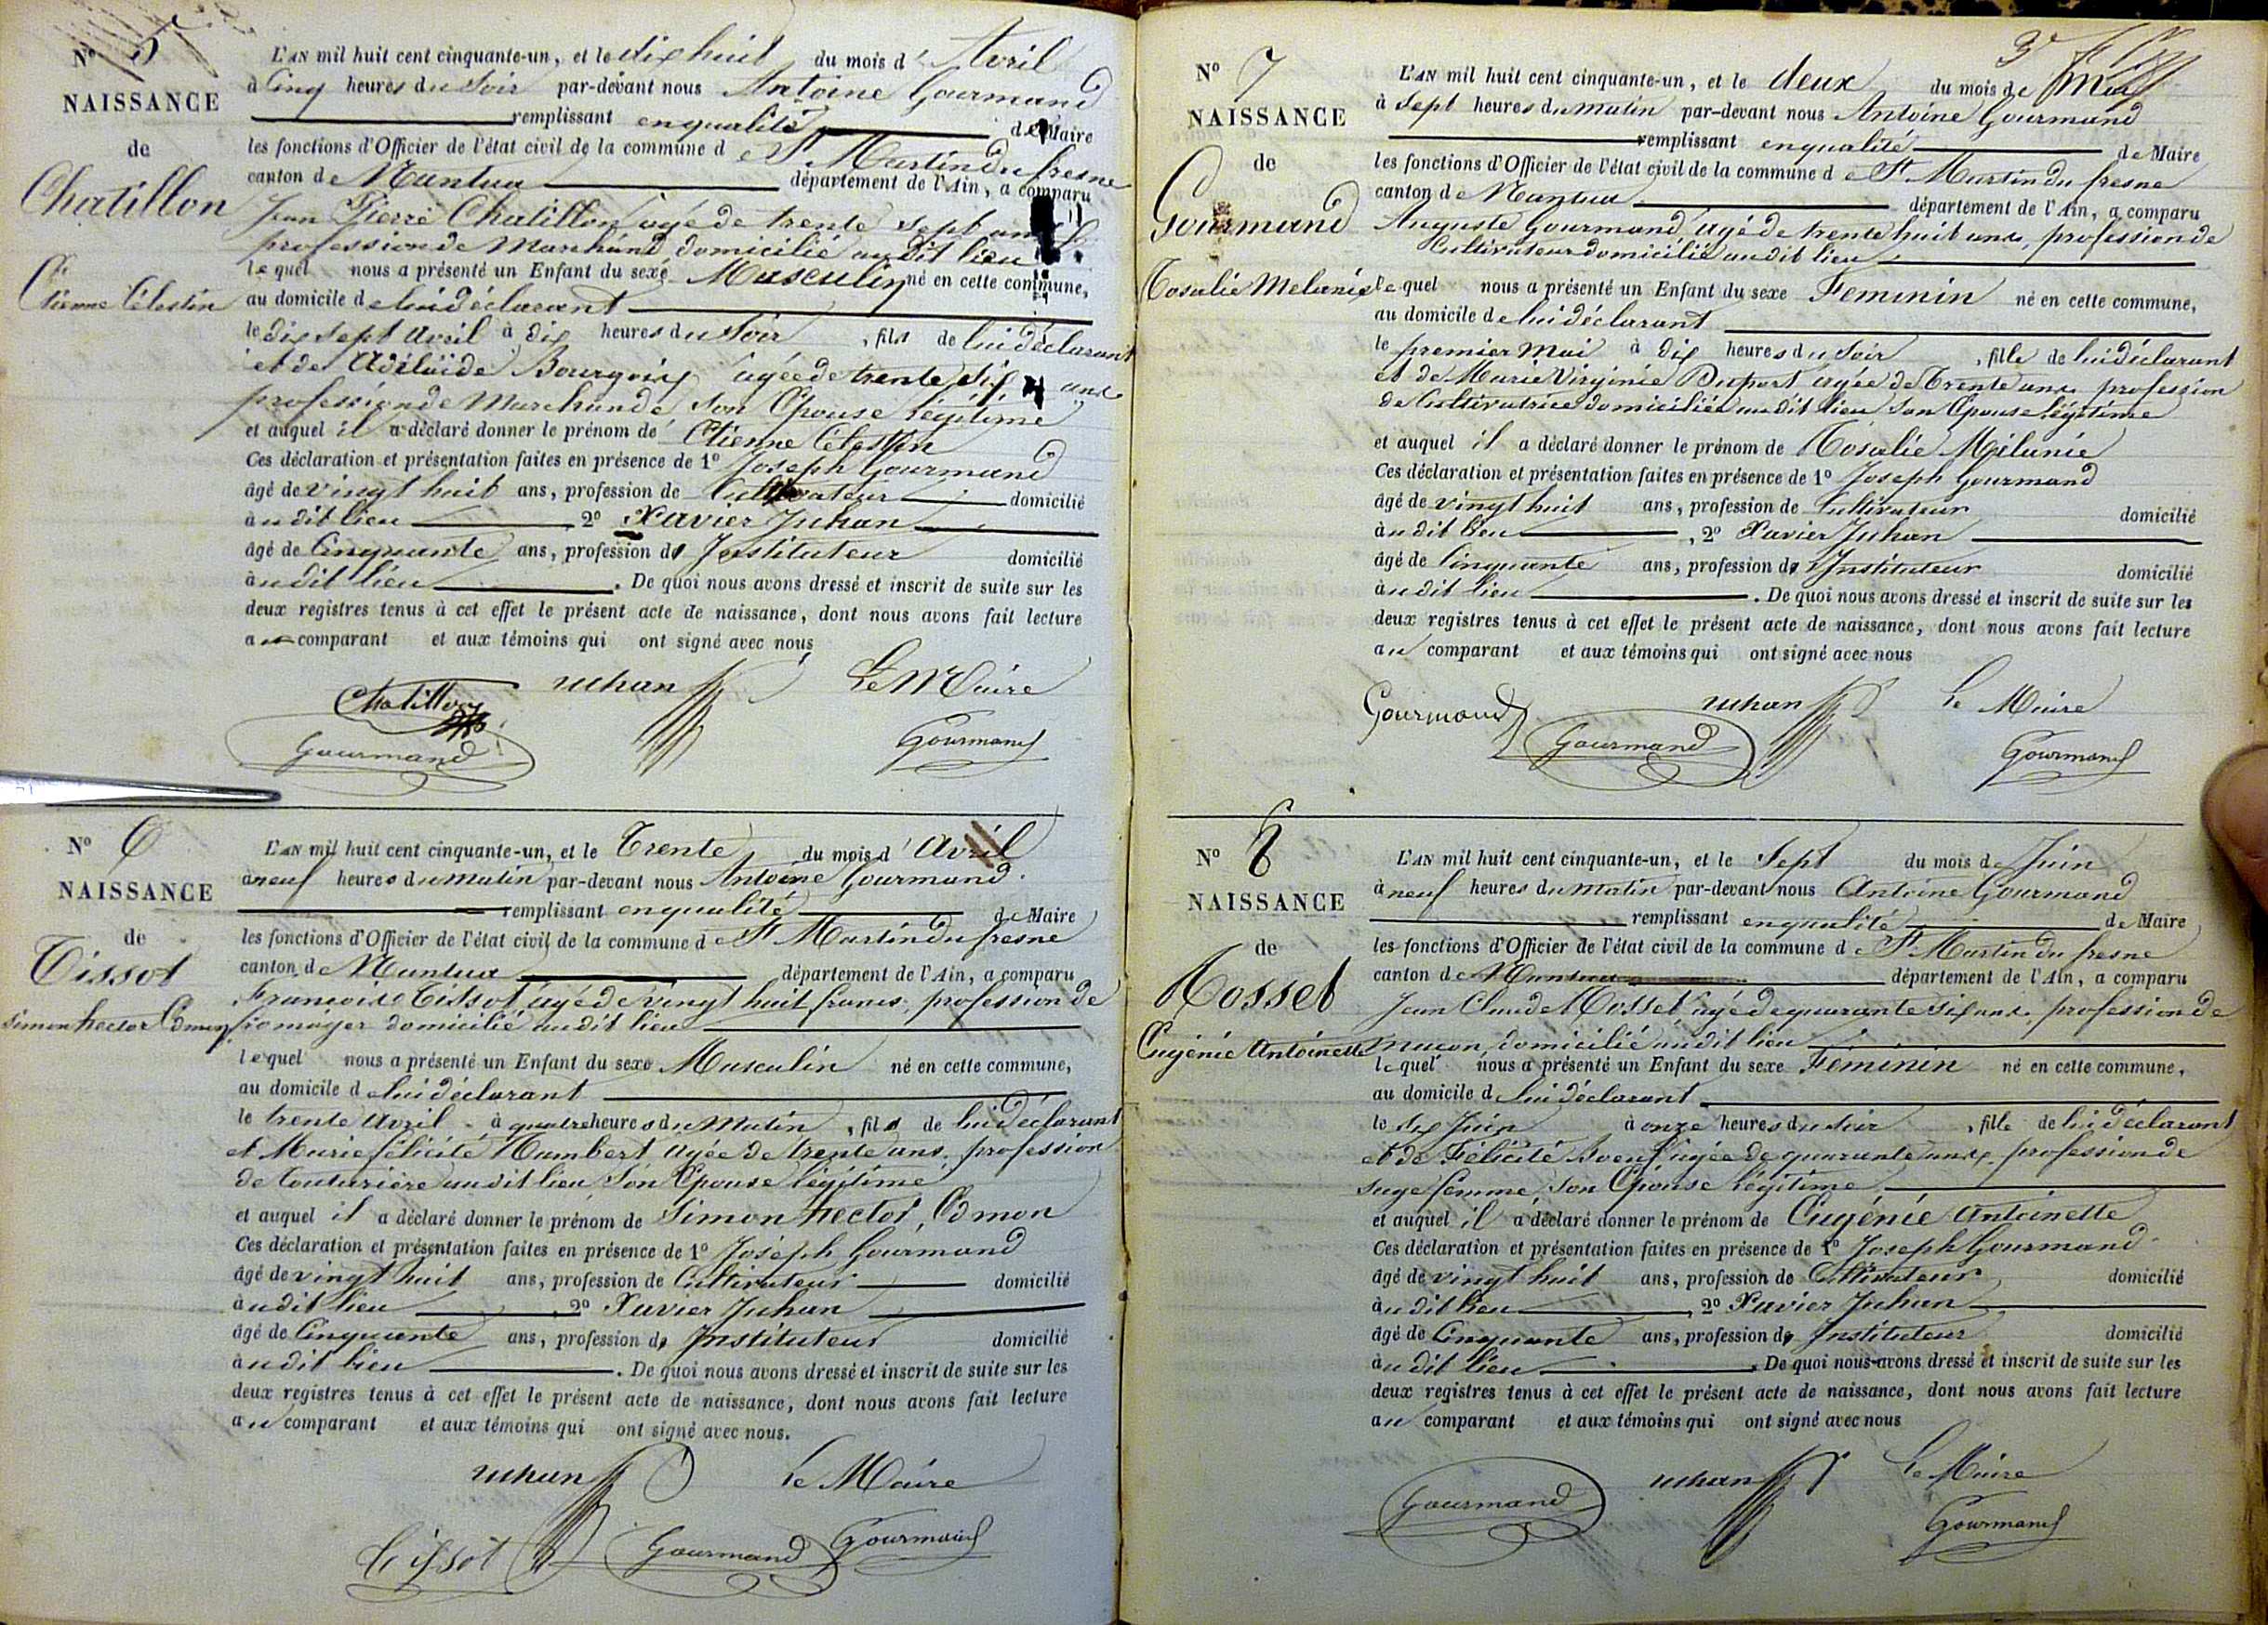 N° 5
NAISSANCE
de
Chatillon
Etienne Célestin
L'AN mil huit cent cinquante-un, et le dix huit du mois d' Avril
à Cinq heures du Soir par-devant nous Antoine Gourmand
remplissant en qualité de Maire
les fonctions d'Officier de l'état civil de la commune de St Martin du fresne
canton de Nantua département de l'Ain, a comparu
Jean Pierre Chatillon agé de trente sept ans
profession de Marchand domicilié au dit lieu
lequel nous a présenté un Enfant du sexe Masculin né en cette commune,
au domicile de lui déclarant
le dix sept avril à dix heures du Soir, fils de lui déclarant
et de Adélaïde agée de trente six ans
profession de Marchande Son Epouse légitime
et auquel il a déclaré donner le prénom de Etienne Célestin
Ces déclaration et présentation faites en présence de 1° Joseph Gourmand
âgé de vingt huit ans, profession de Cultivateur domicilié
audit lieu 2° Xavier Juhan
âgé de Cinquante ans, profession d' Instituteur domicilié
audit lieu. De quoi nous avons dressé et inscrit de suite sur les
deux registres tenus à cet effet le présent acte de naissance, dont nous avons fait lecture
au comparant et aux témoins qui ont signé avec nous
Chatillon Juhan Le Maire
Gourmand Gourmand
N° 6
NAISSANCE
de
Tissot
Simon hector Edmon
L'AN mil huit cent cinquante-un, et le Trente du mois d' avril
à neuf heures du matin par-devant nous Antoine Gourmand
remplissant en qualité de Maire
les fonctions d'Officier de l'état civil de la commune de St Martin du fresne
canton de Nantua département de l'Ain, a comparu
Francoise Tissot agé de vingt huit francs, profession de
fromager domicilié audit lieu
lequel nous a présenté un Enfant du sexe Masculin né en cette commune,
au domicile de lui déclarant
le trente avril à quatre heures du Matin, fils de lui déclarant
et Marie félicité Humbert agée de trente ans, profession
de Couturière audit lieu Son Epouse légitime
et auquel il a déclaré donner le prénom de Simon hector, Edmon
Ces déclaration et présentation faites en présence de 1° Joseph Gourmand
âgé de vingt huit ans, profession de Cultivateur domicilié
audit lieu, 2° Xavier Juhan
âgé de Cinquante ans, profession d' Instituteur domicilié
audit lieu. De quoi nous avons dressé et inscrit de suite sur les
deux registres tenus à cet effet le présent acte de naissance, dont nous avons fait lecture
au comparant et aux témoins qui ont signé avec nous.
Juhan Le Maire
Tissot Gourmand Gourmand
N° 7
NAISSANCE
de
Gourmand
Rosalie Melanie
L'AN mil huit cent cinquante-un, et le deux du mois de Mai
à Sept heures du matin par-devant nous Antoine Gourmand
remplissant en qualité de Maire
les fonctions d'Officier de l'état civil de la commune de St Martin du fresne
canton de Nantua département de l'Ain, a comparu
Auguste Gourmand agé de trente huit ans, profession de
Cultivateur domicilié audit lieu
lequel nous a présenté un Enfant du sexe Feminin né en cette commune,
au domicile de lui déclarant
le premier Mai à dix heures du Soir, fille de lui déclarant
et de Marie Virginie Duport agée de Trente ans profession
de Cultivatrice domiciliée audit lieu Son Epouse légitime
et auquel il a déclaré donner le prénom de Rosalie Mélanie
Ces déclaration et présentation faites en présence de 1° Joseph Gourmand
âgé de vingt huit ans, profession de Cultivateur domicilié
audit lieu, 2° Xavier Juhan
âgé de Cinquante ans, profession d' Instituteur domicilié
audit lieu. De quoi nous avons dressé et inscrit de suite sur les
deux registres tenus à cet effet le présent acte de naissance, dont nous avons fait lecture
au comparant et aux témoins qui ont signé avec nous
Gourmand Juhan Le Maire
Gourmand Gourmand
N° 8
NAISSANCE
de
Rosset
Eugénie Antoinette
L'AN mil huit cent cinquante-un, et le Sept du mois de Juin
à neuf heures du Matin par-devant nous Antoine Gourmand
remplissant en qualité de Maire
les fonctions d'Officier de l'état civil de la commune de St Martin du fresne
canton de Nantua département de l'Ain, a comparu
Jean Claude Rosset agé de quarante six ans, profession de
macon, domicilié audit lieu
lequel nous a présenté un Enfant du sexe Féminin né en cette commune,
au domicile de lui déclarant
le six Juin à onze heures du soir, fille de lui déclarant
et de Félicité agée de quarante ans, profession de
sage femme, Son Epouse légitime
et auquel il a déclaré donner le prénom de Eugénie Antoinette
Ces déclaration et présentation faites en présence de 1° Joseph Gourmand
âgé de vingt huit ans, profession de Cultivateur domicilié
audit lieu, 2° Xavier Juhan
âgé de Cinquante ans, profession d' Instituteur domicilié
audit lieu. De quoi nous avons dressé et inscrit de suite sur les
deux registres tenus à cet effet le présent acte de naissance, dont nous avons fait lecture
au comparant et aux témoins qui ont signé avec nous
Gourmand Juhan Le Maire
Gourmand